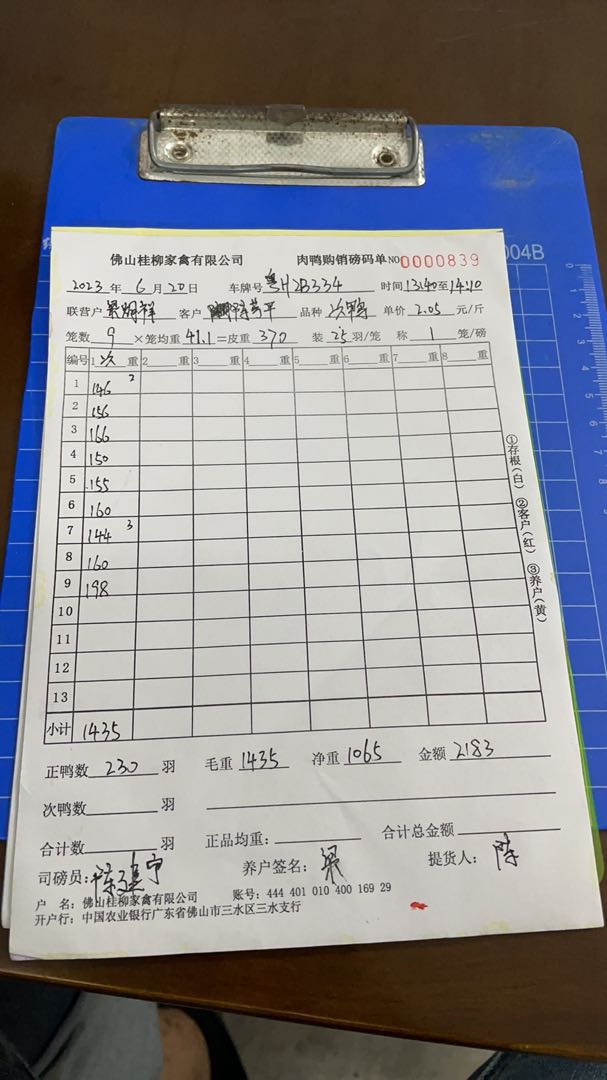 佛山桂柳家禽有限公司 肉鸭购销磅码单 NO 0000839
2023 年 6 月 20 日 车牌号 粤H2B334 时间 13:40 至 14:10
联营户 客户 品种 次鸭 单价 2.05 元/斤
笼数 9 ×笼均重 41.1 =皮重 370 装 25 羽/笼 称 1 笼/磅
编号 1 次 重 2 重 3 重 4 重 5 重 6 重 7 重 8 重
1 146 2
2 156
3 166
4 150
5 155
6 160
7 144 3
8 160
9 198
10
11
12
13
小计 1435
正鸭数 230 羽 毛重 1435 净重 1065 金额 2183
次鸭数 羽
合计数 羽 正品均重: 合计总金额
司磅员: 养户签名: 梁 提货人: 陈
户 名: 佛山桂柳家禽有限公司 账号: 444 401 010 400 169 29
开户行: 中国农业银行广东省佛山市三水区三水支行
①存根(白) ②客户(红) ③养户(黄)
004B